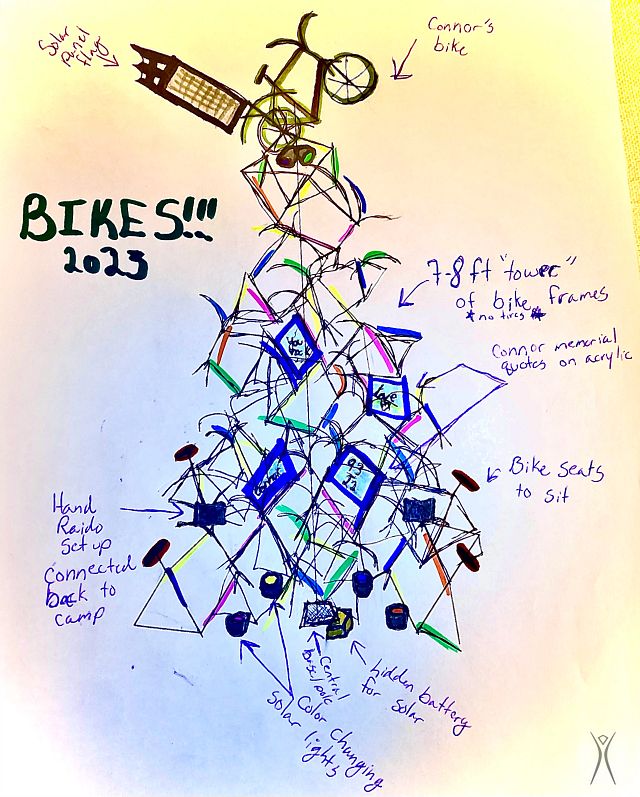 Solar
Panel
flag
Connor's
bike
BIKES!!!
2023
7-8 ft "tower"
of bike frames
*no tires*
Connor memorial
quotes on acrylic
You
Rock
Bike seats
to sit
Hand
Raido
Set up
connected
back to
camp
Central
Base/pole
hidden battery
for solar
Color Changing
solar lights